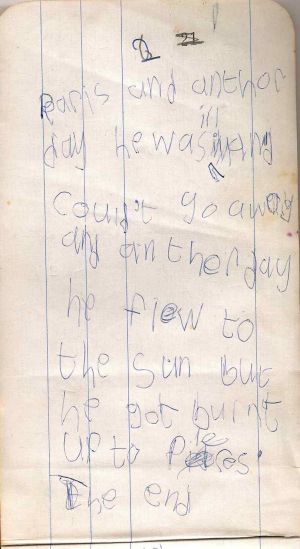 2
paris and anthor
in
day he was
coud't go away
and an ther day
he flew to
the sun but
he got burnt
up to Pieses.
The end